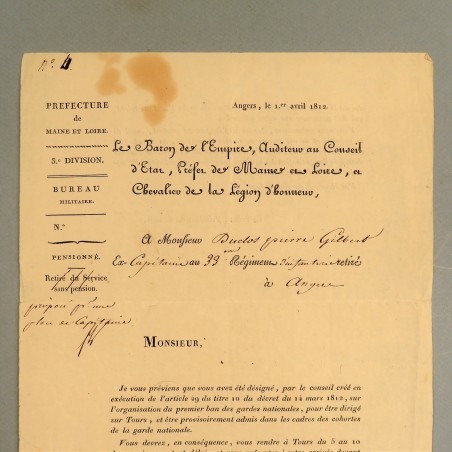 N.o 4.
PREFECTURE
DE
MAINE ET LOIRE.
3.e DIVISION.
BUREAU
MILITAIRE.
N.o
PENSIONNÉ.
Retiré du Service
sans pension.
proposé pr une
place de Capitaine
Angers, le 1.er avril 1812.
Le Baron de l'Empire, Auditeur au Conseil
d'Etat, Préfet de Maine et Loire, et
Chevalier de la Légion d'honneur,
A Monsieur Duclos pierre Gilbert
Ex-Capitaine au 33 Régiment retiré
à
MONSIEUR,
Je vous préviens que vous avez été désigné, par le conseil créé en
exécution de l'article 29 du titre 10 du décret du 14 mars 1812, sur
l'organisation du premier ban des gardes nationales, pour être dirigé
sur Tours, et être provisoirement admis dans les cadres des cohortes
de la garde nationale.
Vous devrez, en conséquence, vous rendre à Tours du 5 au 10